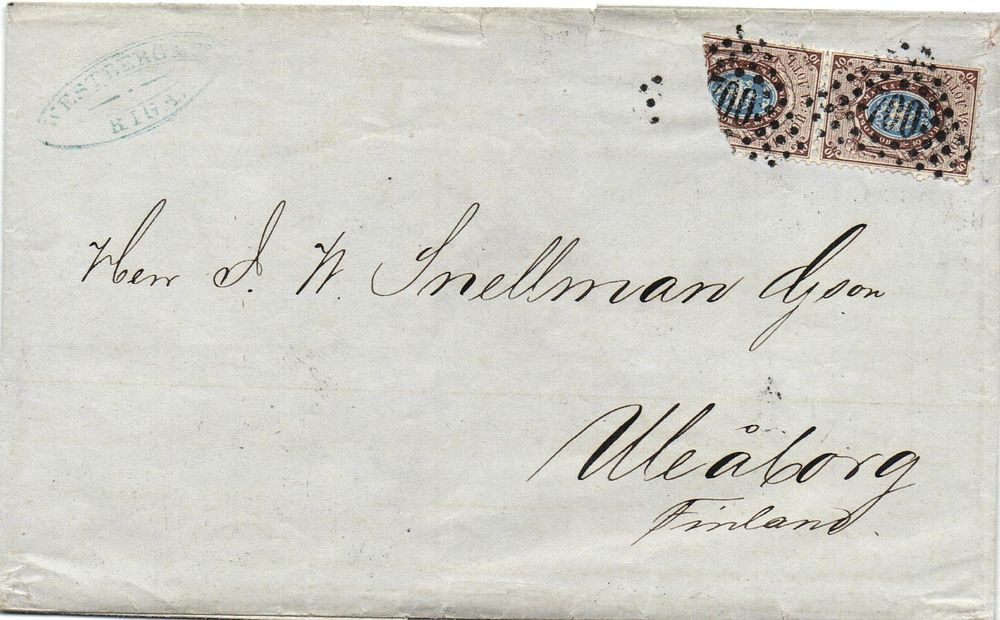 WESTBERG &
RIGA.
Herr J. W. Snellman Gson
Uleåborg
Finland.